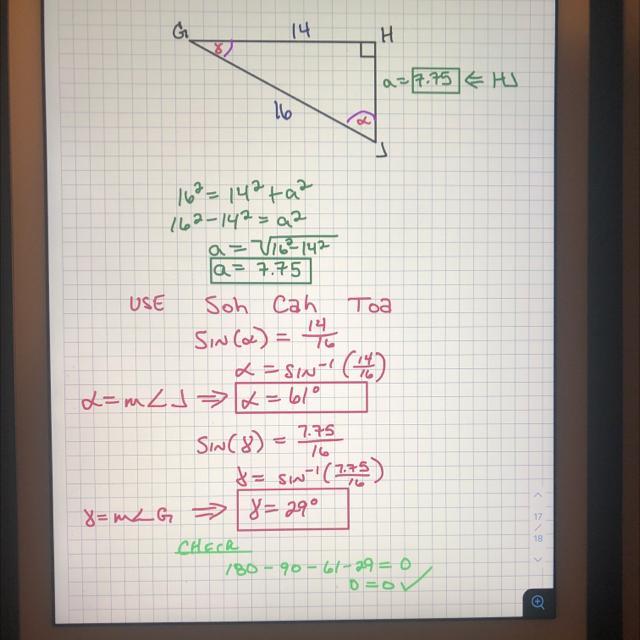 G 14 H
γ
a = 7.75 ⇐ HJ
16
α
J
16² = 14² + a²
16² - 14² = a²
a = √16² - 14²
a = 7.75
USE Soh Cah Toa
SIN(α) = 14/16
α = SIN⁻¹(14/16)
α = m∠J ⇒ α = 61°
SIN(γ) = 7.75/16
γ = SIN⁻¹(7.75/16)
γ = m∠G ⇒ γ = 29°
CHECK
180 - 90 - 61 - 29 = 0
0 = 0 ✓
17
/
18